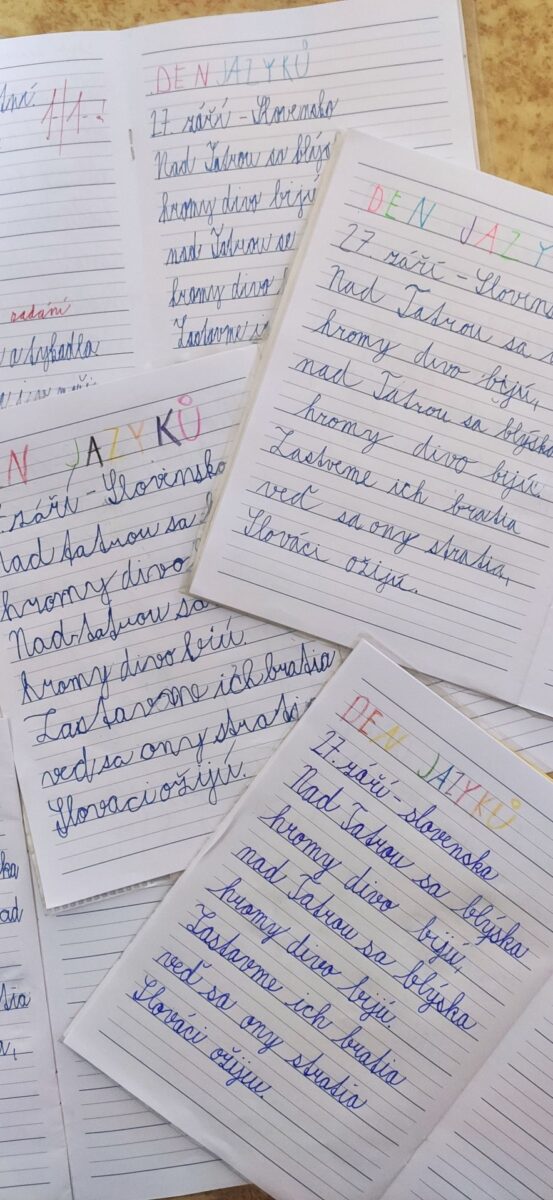 DEN JAZYKŮ
27. září - Slovensko
Nad Tatrou sa
hromy divo bijú
nad Tatrou se
hromy divo
Zastavme
zadání
a tykadla
DEN JAZY
27. září - Slovens
Nad Tatrou sa
hromy divo bijú,
nad Tatrou sa blýska
hromy divo bijú.
Zastavme ich bratia
veď sa ony stratia,
Slováci ožijú.
N JAZYKŮ
září - Slovensko
Nad tatrou sa
hromy divo
Nad tatrou sa
hromy divo biú.
Zastavme ich bratia
veď sa ony strati
Slovaci ožijí.
DEN JAZYKŮ
27. září - slovenska
Nad Tatrou sa blýska
hromy divo bijú,
nad Tatrou sa blýska
hromy divo bijú.
Zastavme ich bratia
veď sa ony stratia
Slováci ožijiu.
ka
ad
tia